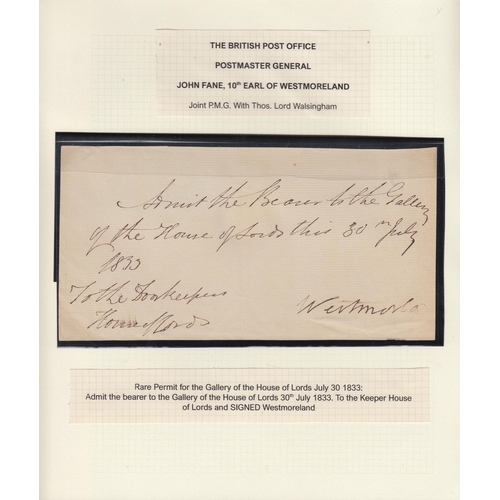 THE BRITISH POST OFFICE
POSTMASTER GENERAL
JOHN FANE, 10th EARL OF WESTMORELAND
Joint P.M.G. With Thos. Lord Walsingham
Admit the Bearer to the Gallery
of the House of Lords this 30th July
1833
To the Doorkeepers
House of Lords
Westmorland
Rare Permit for the Gallery of the House of Lords July 30 1833:
Admit the bearer to the Gallery of the House of Lords 30th July 1833. To the Keeper House
of Lords and SIGNED Westmoreland